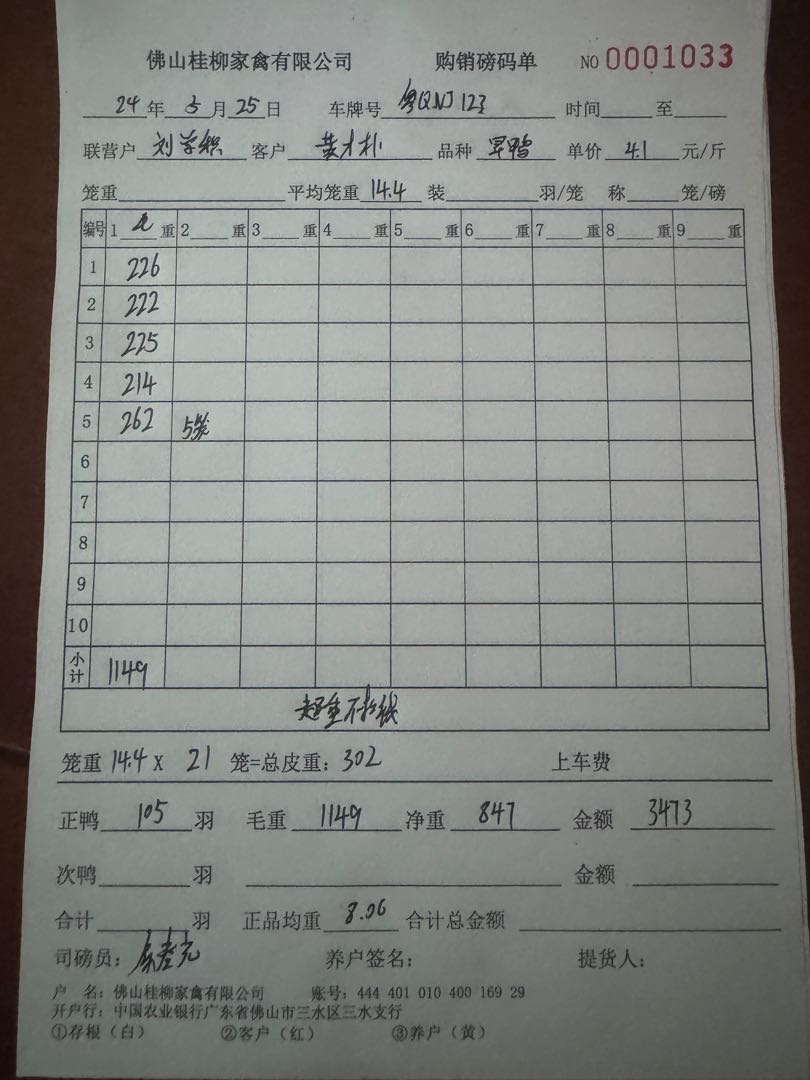 佛山桂柳家禽有限公司 购销磅码单 NO 0001033
24 年 5 月 25 日 车牌号 粤QNJ123 时间 至
联营户 刘学积 客户 黄才朴 品种 旱鸭 单价 4.1 元/斤
笼重 平均笼重 14.4 装 羽/笼 称 笼/磅
编号 1 重 2 重 3 重 4 重 5 重 6 重 7 重 8 重 9 重
1 226
2 222
3 225
4 214
5 262 5
6
7
8
9
10
小计 1149
超重不扣钱
笼重 14.4 x 21 笼=总皮重: 302 上车费
正鸭 105 羽 毛重 1149 净重 847 金额 3473
次鸭 羽 金额
合计 羽 正品均重 8.06 合计总金额
司磅员: 养户签名: 提货人:
户 名: 佛山桂柳家禽有限公司 账号: 444 401 010 400 169 29
开户行: 中国农业银行广东省佛山市三水区三水支行
①存根(白) ②客户(红) ③养户(黄)